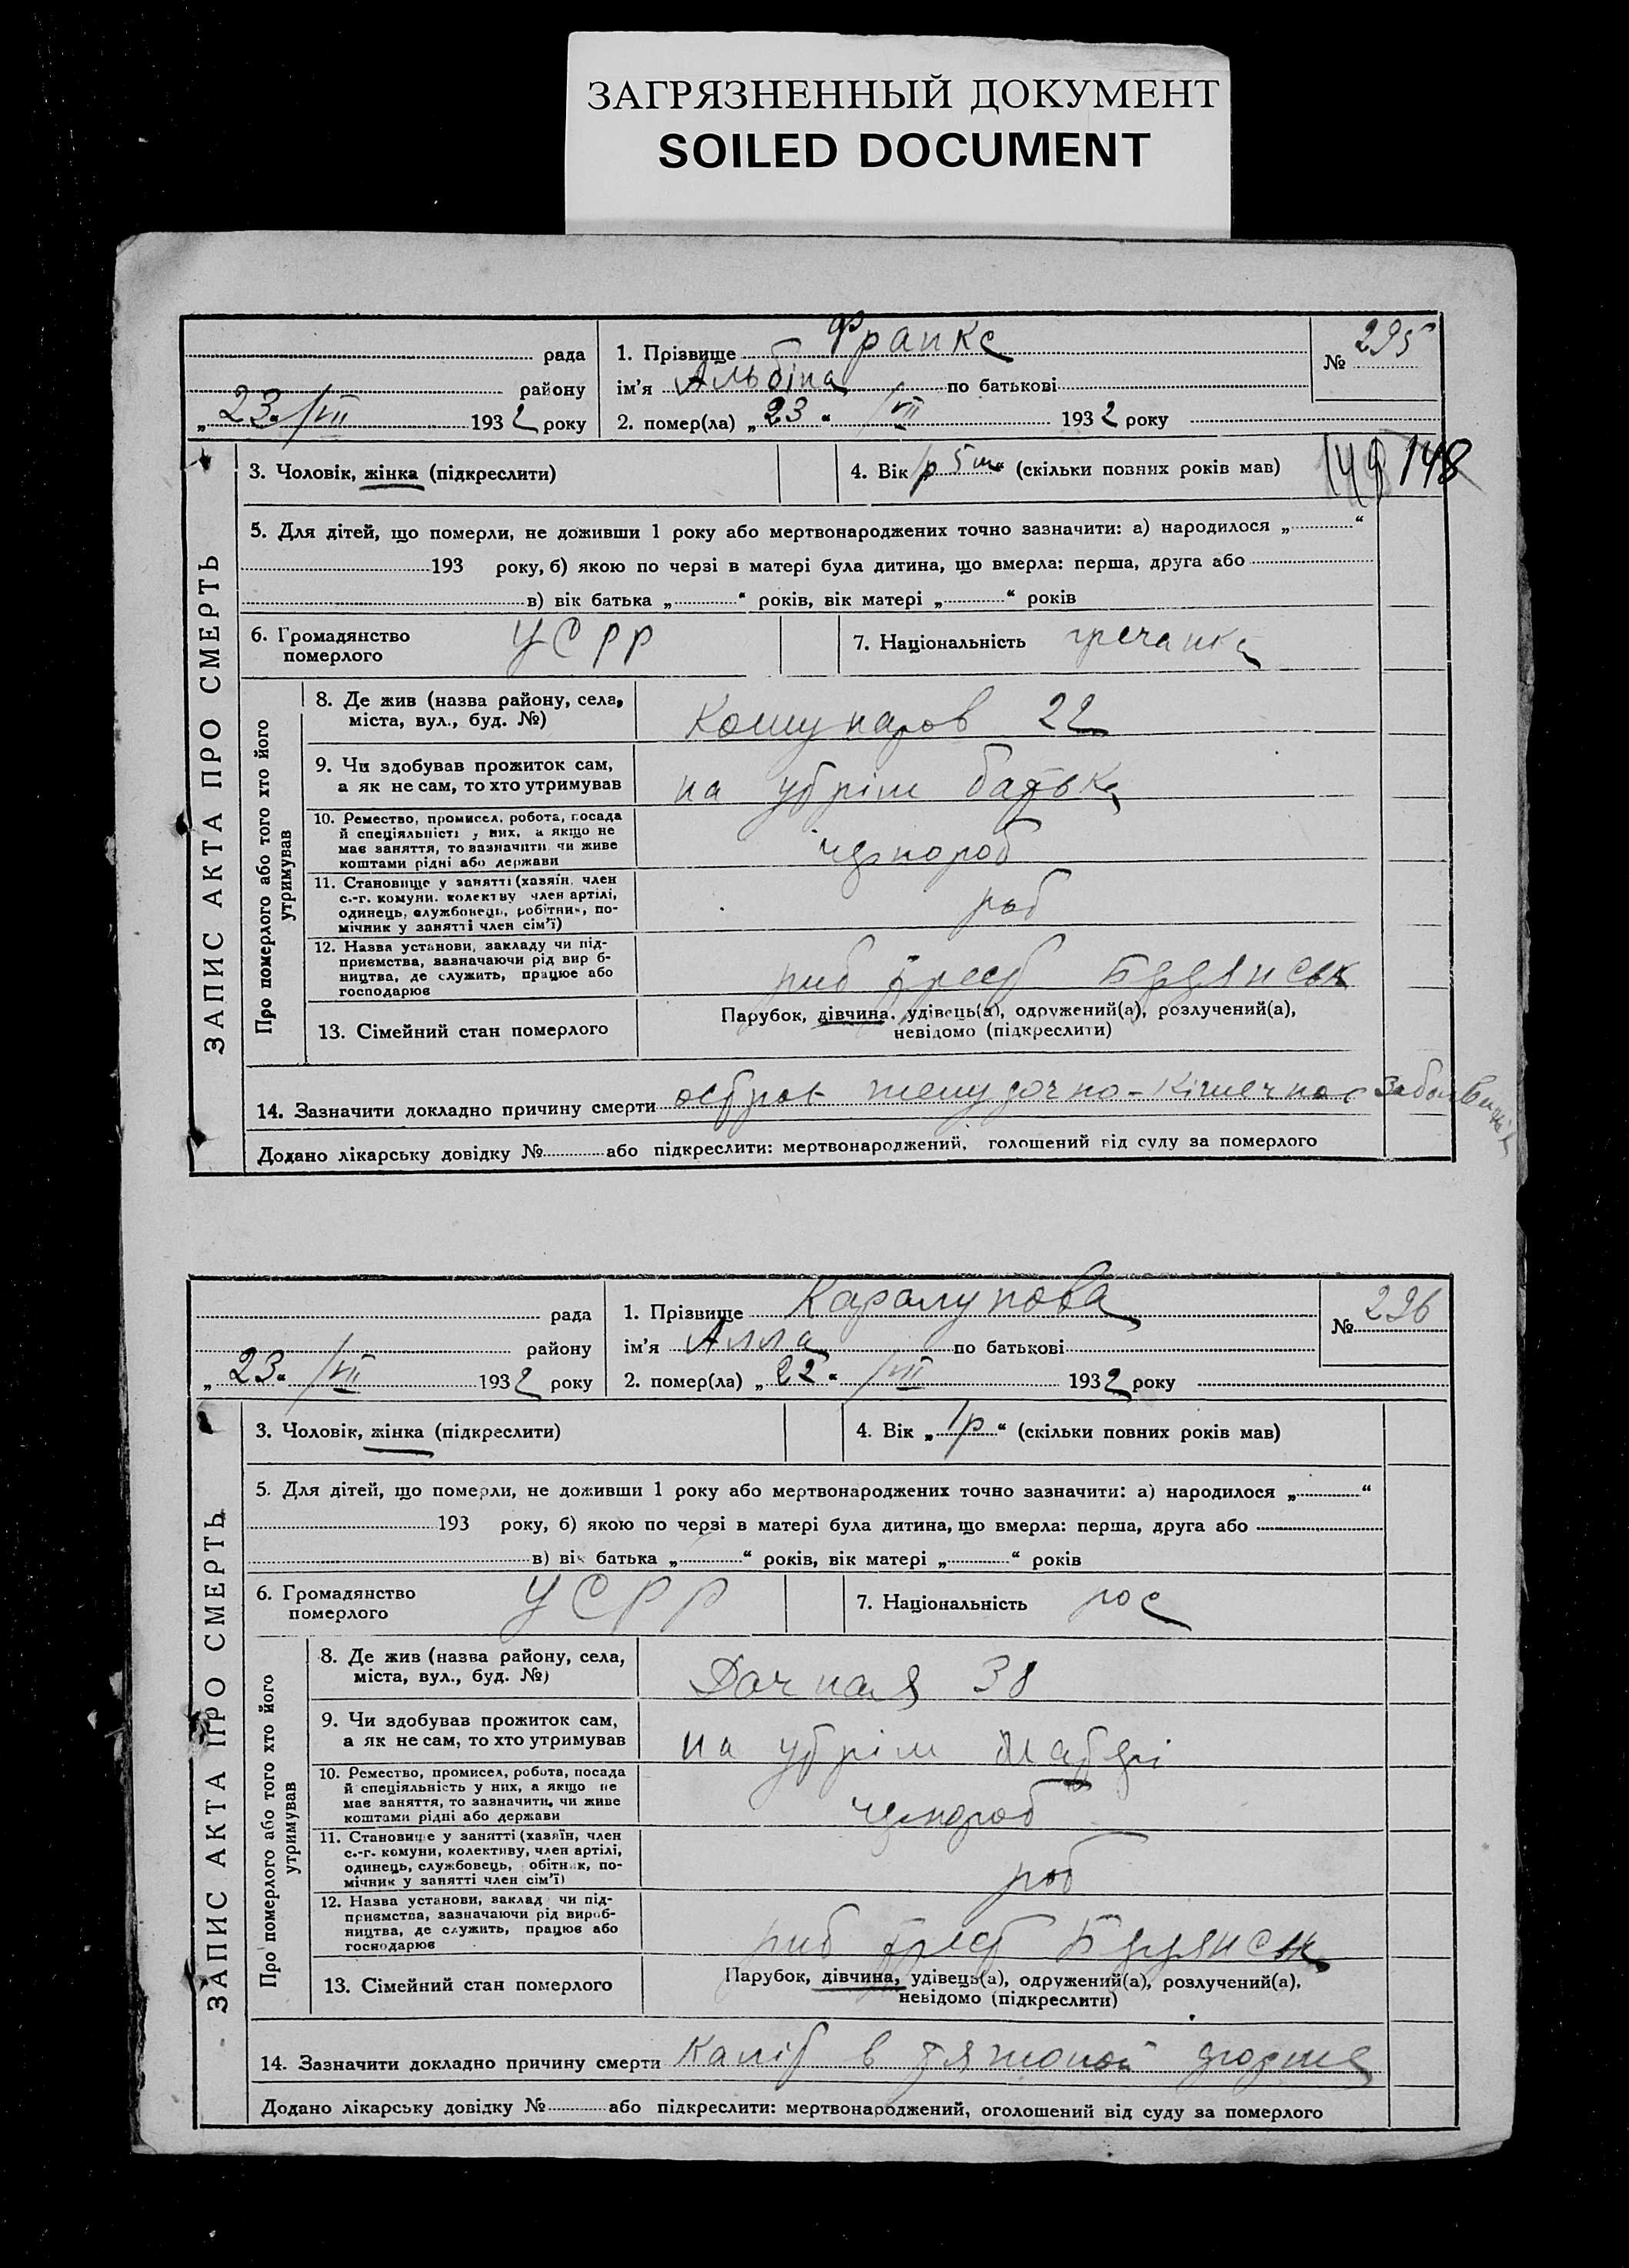 ЗАГРЯЗНЕННЫЙ ДОКУМЕНТ
SOILED DOCUMENT
рада
району
„23“ /VII 1932 року
1. Прізвище Франке
ім’я Альбіна по батькові
2. помер(ла) „23“ /VII 1932 року
№ 295
ЗАПИС АКТА ПРО СМЕРТЬ
3. Чоловік, жінка (підкреслити)
4. Вік 1р 5 м“ (скільки повних років мав)
149 148
5. Для дітей, що померли, не доживши 1 року або мертвонароджених точно зазначити: а) народилося „ “
193 року, б) якою по черзі в матері була дитина, що вмерла: перша, друга або
в) вік батька „ “ років, вік матері „ “ років
6. Громадянство
померлого
УСРР
7. Національність гречанка
Про померлого або того хто його
утримував
8. Де жив (назва району, села,
міста, вул., буд. №)
Комунаров 22
9. Чи здобував прожиток сам,
а як не сам, то хто утримував
на утрім батька
10. Ремество, промисел, робота, посада
й спеціяльність у них, а якщо не
має заняття, то зазначити чи живе
коштами рідні або держави
чернороб
11. Становище у занятті (хазяїн, член
с.-г. комуни, колективу член артілі,
одинець, службовець, робітник, по-
мічник у занятті член сім’ї)
роб
12. Назва установи, закладу чи під-
приємства, зазначаючи рід вироб-
ництва, де служить, працює або
господарює
риб трест Бердянськ
13. Сімейний стан померлого
Парубок, дівчина, удівець(а), одружений(а), розлучений(а),
невідомо (підкреслити)
14. Зазначити докладно причину смерти острое желудочно-кішечное
Додано лікарську довідку № або підкреслити: мертвонароджений, голошений від суду за померлого
рада
району
„23“ /VII 1932 року
1. Прізвище
ім’я Алла по батькові
2. помер(ла) „22“ /VII 1932 року
№ 296
ЗАПИС АКТА ПРО СМЕРТЬ
3. Чоловік, жінка (підкреслити)
4. Вік „1р“ (скільки повних років мав)
5. Для дітей, що померли, не доживши 1 року або мертвонароджених точно зазначити: а) народилося „ “
193 року, б) якою по черзі в матері була дитина, що вмерла: перша, друга або
в) вік батька „ “ років, вік матері „ “ років
6. Громадянство
померлого
УСРР
7. Національність рос
Про померлого або того хто його
утримував
8. Де жив (назва району, села,
міста, вул., буд. №)
Дачная 38
9. Чи здобував прожиток сам,
а як не сам, то хто утримував
на утрім матері
10. Ремество, промисел, робота, посада
й спеціяльність у них, а якщо не
має заняття, то зазначити, чи живе
коштами рідні або держави
чернороб
11. Становище у занятті (хазяїн, член
с.-г. комуни, колективу, член артілі,
одинець, службовець, обітник, по-
мічник у занятті член сім’ї)
роб
12. Назва установи, заклад чи під-
приємства, зазначаючи рід вироб-
ництва, де служить, працює або
господарює
риб трест Бердянськ
13. Сімейний стан померлого
Парубок, дівчина, удівець(а), одружений(а), розлучений(а),
невідомо (підкреслити)
14. Зазначити докладно причину смерти Каліт в тяжолой форме
Додано лікарську довідку № або підкреслити: мертвонароджений, оголошений від суду за померлого